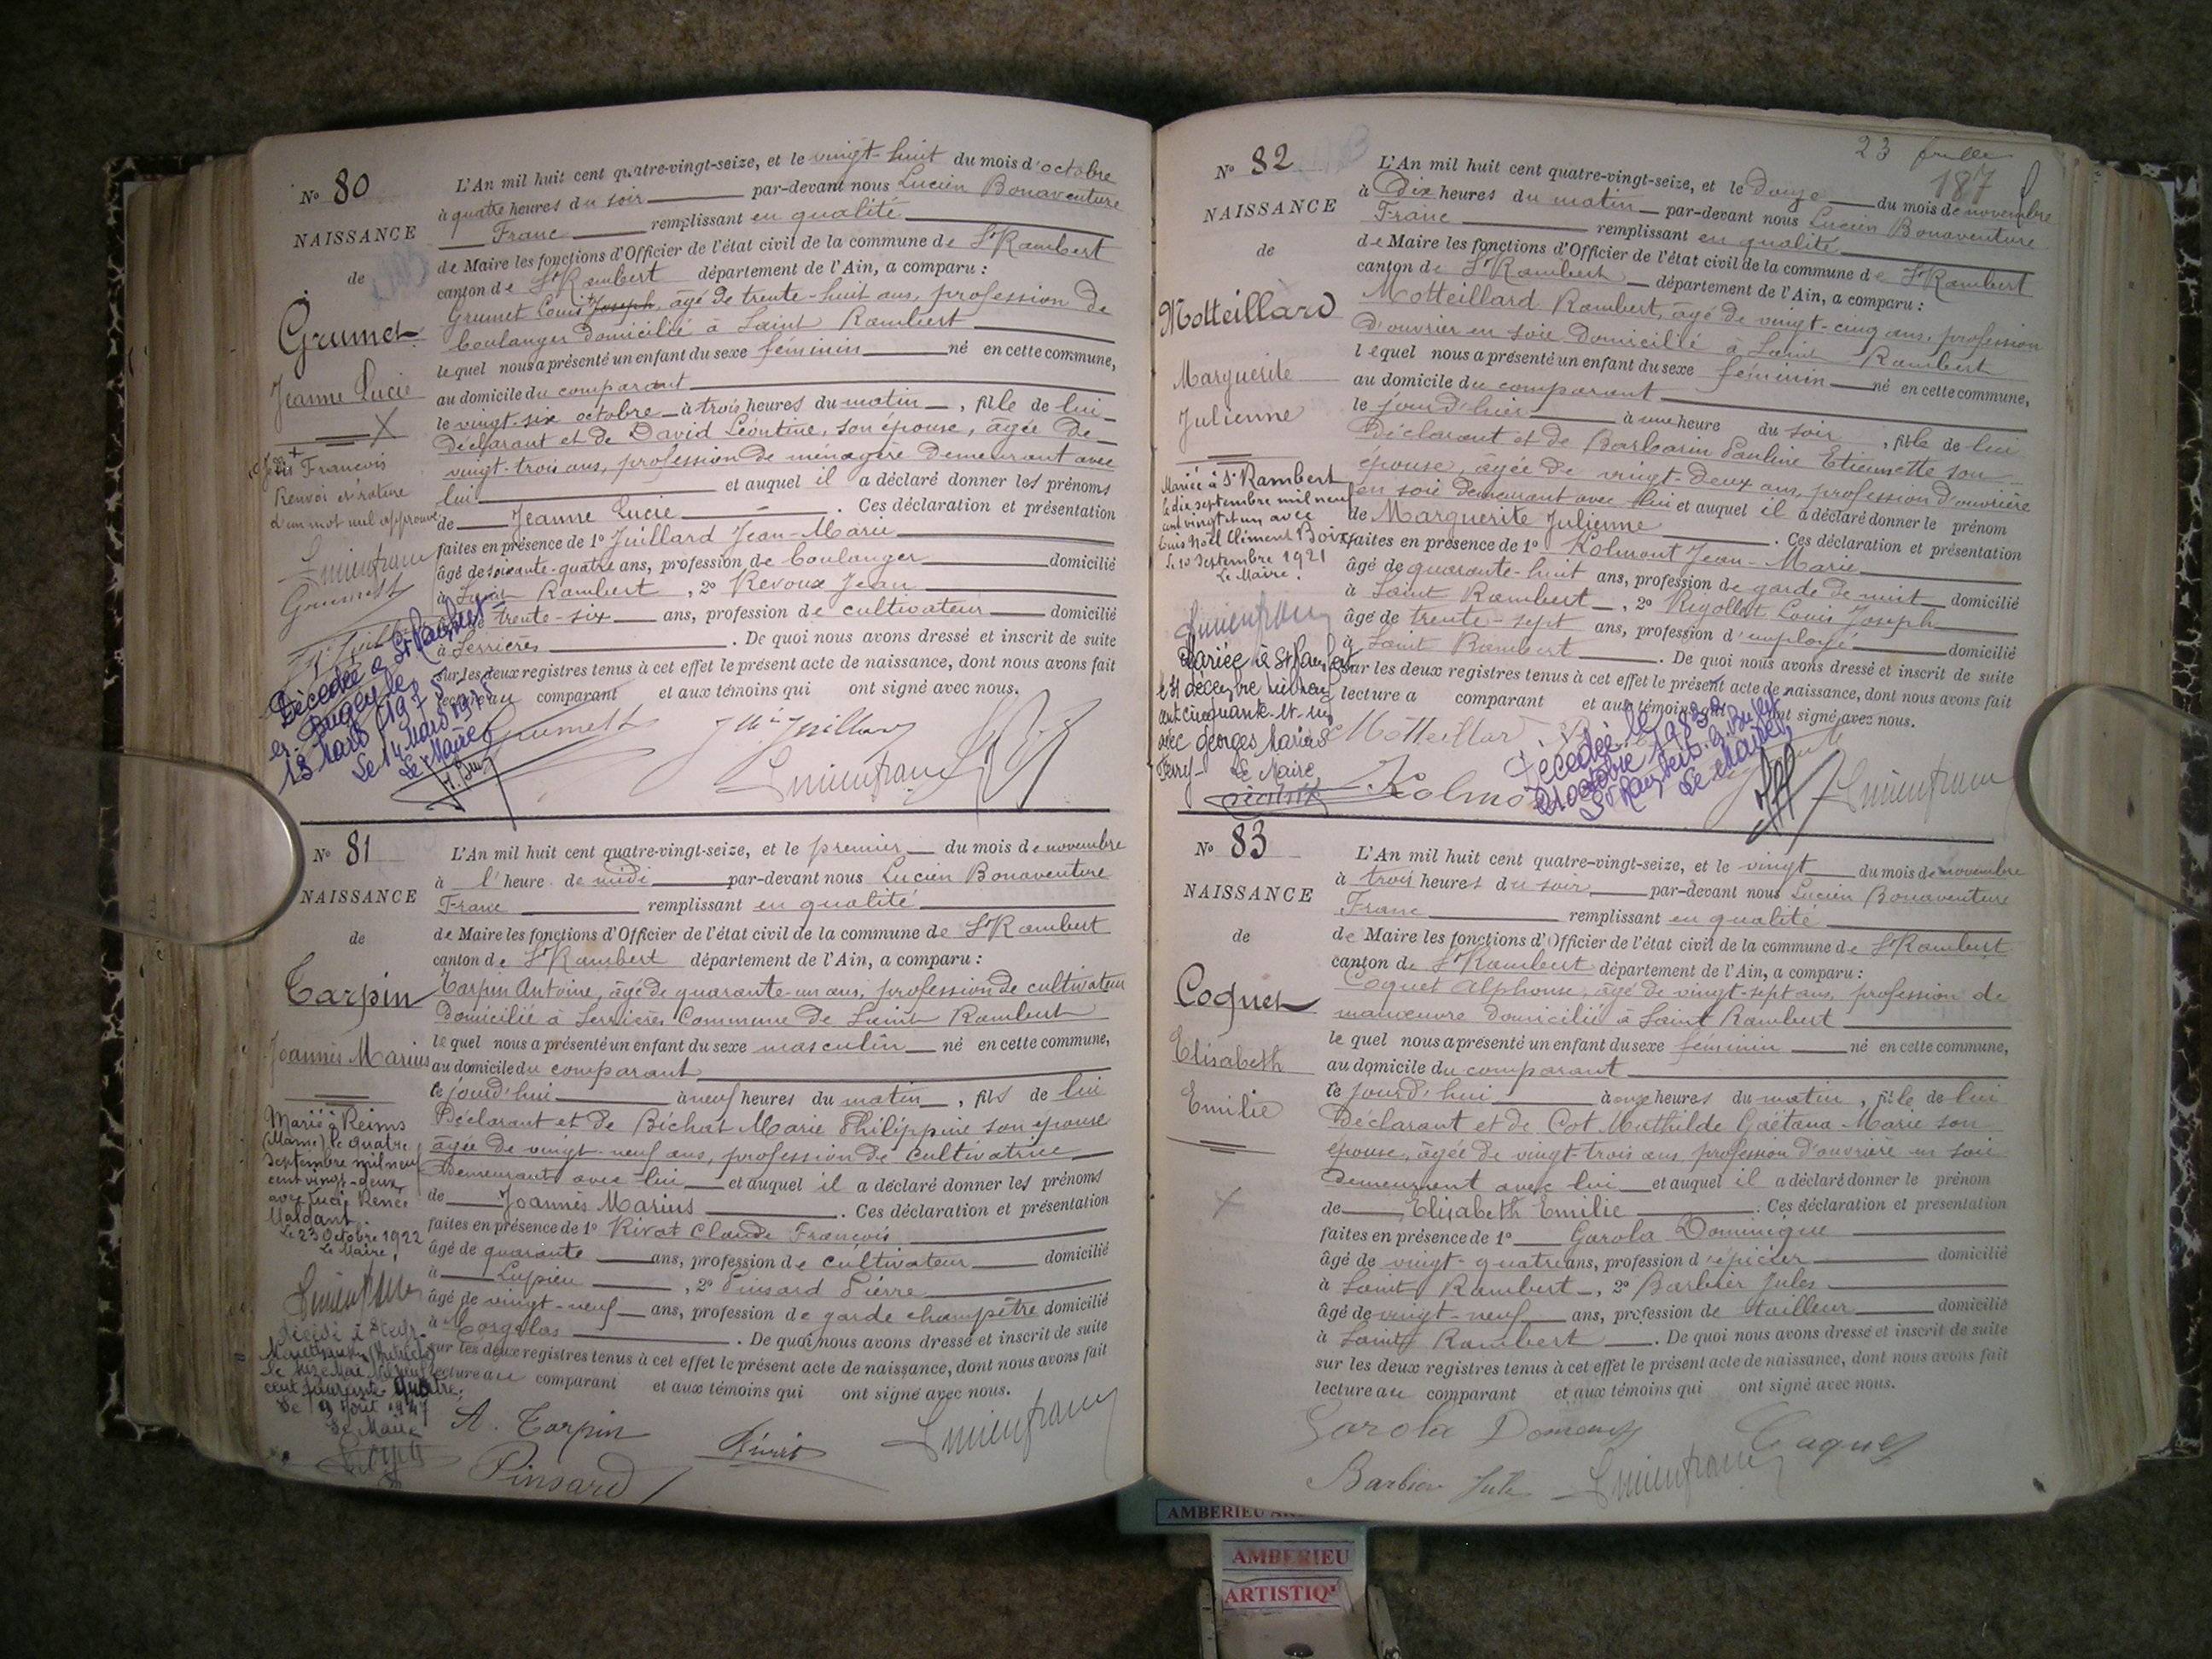 No 80
NAISSANCE
de
Grumet
Jeanne Lucie
X
François
Renvoi et rature
d'un mot nul approuvé
Lucien franc
Grumet
Décédée à St Rambert
en Bugey le
13 Mars 1975
Le 14 Mars 1975
Le Maire
L'An mil huit cent quatre-vingt-seize, et le vingt-huit du mois d'octobre
à quatre heures du soir par-devant nous Lucien Bonaventure
Franc remplissant en qualité
de Maire les fonctions d'Officier de l'état civil de la commune de St Rambert
canton de St Rambert département de l'Ain, a comparu :
Grumet Louis Joseph, âgé de trente-huit ans, profession de
boulanger domicilié à Saint Rambert
lequel nous a présenté un enfant du sexe féminin né en cette commune,
au domicile du comparant
le vingt-six octobre à trois heures du matin, fille de lui
déclarant et de David Léontine, son épouse, âgée de
vingt-trois ans, profession de ménagère demeurant avec
lui et auquel il a déclaré donner les prénoms
de Jeanne Lucie. Ces déclaration et présentation
faites en présence de 1o Juillard Jean-Marie
âgé de soixante-quatre ans, profession de boulanger domicilié
à Saint Rambert, 2o Revoux Jean
âgé de trente-six ans, profession de cultivateur domicilié
à Serrières. De quoi nous avons dressé et inscrit de suite
sur les deux registres tenus à cet effet le présent acte de naissance, dont nous avons fait
lecture au comparant et aux témoins qui ont signé avec nous.
Grumet Juillard
Lucien franc
No 81
NAISSANCE
de
Tarpin
Joannès Marius
Marié à Reims
(Marne) le quatre
septembre mil neuf
cent vingt-deux
avec Lucie Renée
Maldant.
Le 23 Octobre 1922
Le Maire,
Lucien franc
cent quarante quatre.
Le 9 Août 1947
Le Maire
L'An mil huit cent quatre-vingt-seize, et le premier du mois de novembre
à l'heure de midi par-devant nous Lucien Bonaventure
Franc remplissant en qualité
de Maire les fonctions d'Officier de l'état civil de la commune de St Rambert
canton de St Rambert département de l'Ain, a comparu :
Tarpin Antoine, âgé de quarante-un ans, profession de cultivateur
domicilié à Serrières Commune de Saint Rambert
lequel nous a présenté un enfant du sexe masculin né en cette commune,
au domicile du comparant
le jourd'hui à neuf heures du matin, fils de lui
déclarant et de Bichat Marie Philippine son épouse
âgée de vingt-neuf ans, profession de cultivatrice
demeurant avec lui et auquel il a déclaré donner les prénoms
de Joannès Marius. Ces déclaration et présentation
faites en présence de 1o Rivat Claude François
âgé de quarante ans, profession de cultivateur domicilié
à Lupieu, 2o Pinsard Pierre
âgé de vingt-neuf ans, profession de garde champêtre domicilié
à Morgelas. De quoi nous avons dressé et inscrit de suite
sur les deux registres tenus à cet effet le présent acte de naissance, dont nous avons fait
lecture au comparant et aux témoins qui ont signé avec nous.
A. Tarpin
Pinsard
Lucien franc
23
187
No 82
NAISSANCE
de
Motteillard
Marguerite
Julienne
Mariée à St Rambert
le dix septembre mil neuf
cent vingt et un avec
Louis Noël Clément
Le 10 Septembre 1921
Le Maire.
Lucien franc
Mariée à St Rambert
le 31 décembre mil neuf
cent cinquante-et-un
avec Georges Marius
Ferry
Le Maire
L'An mil huit cent quatre-vingt-seize, et le douze du mois de novembre
à dix heures du matin par-devant nous Lucien Bonaventure
Franc remplissant en qualité
de Maire les fonctions d'Officier de l'état civil de la commune de St Rambert
canton de St Rambert département de l'Ain, a comparu :
Motteillard Rambert, âgé de vingt-cinq ans, profession
d'ouvrier en soie domicilié à Saint Rambert
lequel nous a présenté un enfant du sexe féminin né en cette commune,
au domicile du comparant
le jour d'hier à une heure du soir, fille de lui
déclarant et de Barbarin Pauline Etiennette son
épouse, âgée de vingt-deux ans, profession d'ouvrière
en soie demeurant avec lui et auquel il a déclaré donner le prénom
de Marguerite Julienne. Ces déclaration et présentation
faites en présence de 1o Kolmont Jean-Marie
âgé de quarante-huit ans, profession de garde de nuit domicilié
à Saint Rambert, 2o Rigollet Louis Joseph
âgé de trente-sept ans, profession d'employé domicilié
à Saint Rambert. De quoi nous avons dressé et inscrit de suite
sur les deux registres tenus à cet effet le présent acte de naissance, dont nous avons fait
lecture a comparant et aux témoins qui ont signé avec nous.
Motteillard
Décédée le
21 octobre 1983 à
St Rambert e. Bugey
Le Maire,
Lucien franc
No 83
NAISSANCE
de
Coquet
Elisabeth
Emilie
L'An mil huit cent quatre-vingt-seize, et le vingt du mois de novembre
à trois heures du soir par-devant nous Lucien Bonaventure
Franc remplissant en qualité
de Maire les fonctions d'Officier de l'état civil de la commune de St Rambert
canton de St Rambert département de l'Ain, a comparu :
Coquet Alphonse, âgé de vingt-sept ans, profession de
manœuvre domicilié à Saint Rambert
lequel nous a présenté un enfant du sexe féminin né en cette commune,
au domicile du comparant
le jourd'hui à onze heures du matin, fille de lui
déclarant et de Cot Mathilde Gaëtana Marie son
épouse, âgée de vingt-trois ans profession d'ouvrière en soie
demeurant avec lui et auquel il a déclaré donner le prénom
de Elisabeth Emilie. Ces déclaration et présentation
faites en présence de 1o Garola Dominique
âgé de vingt-quatre ans, profession d'épicier domicilié
à Saint Rambert, 2o Barbier Jules
âgé de vingt-neuf ans, profession de tailleur domicilié
à Saint Rambert. De quoi nous avons dressé et inscrit de suite
sur les deux registres tenus à cet effet le présent acte de naissance, dont nous avons fait
lecture au comparant et aux témoins qui ont signé avec nous.
Garola Coquet
Barbier Jules Lucien franc
AMBERIEU
AMBERIEU
ARTISTIQ